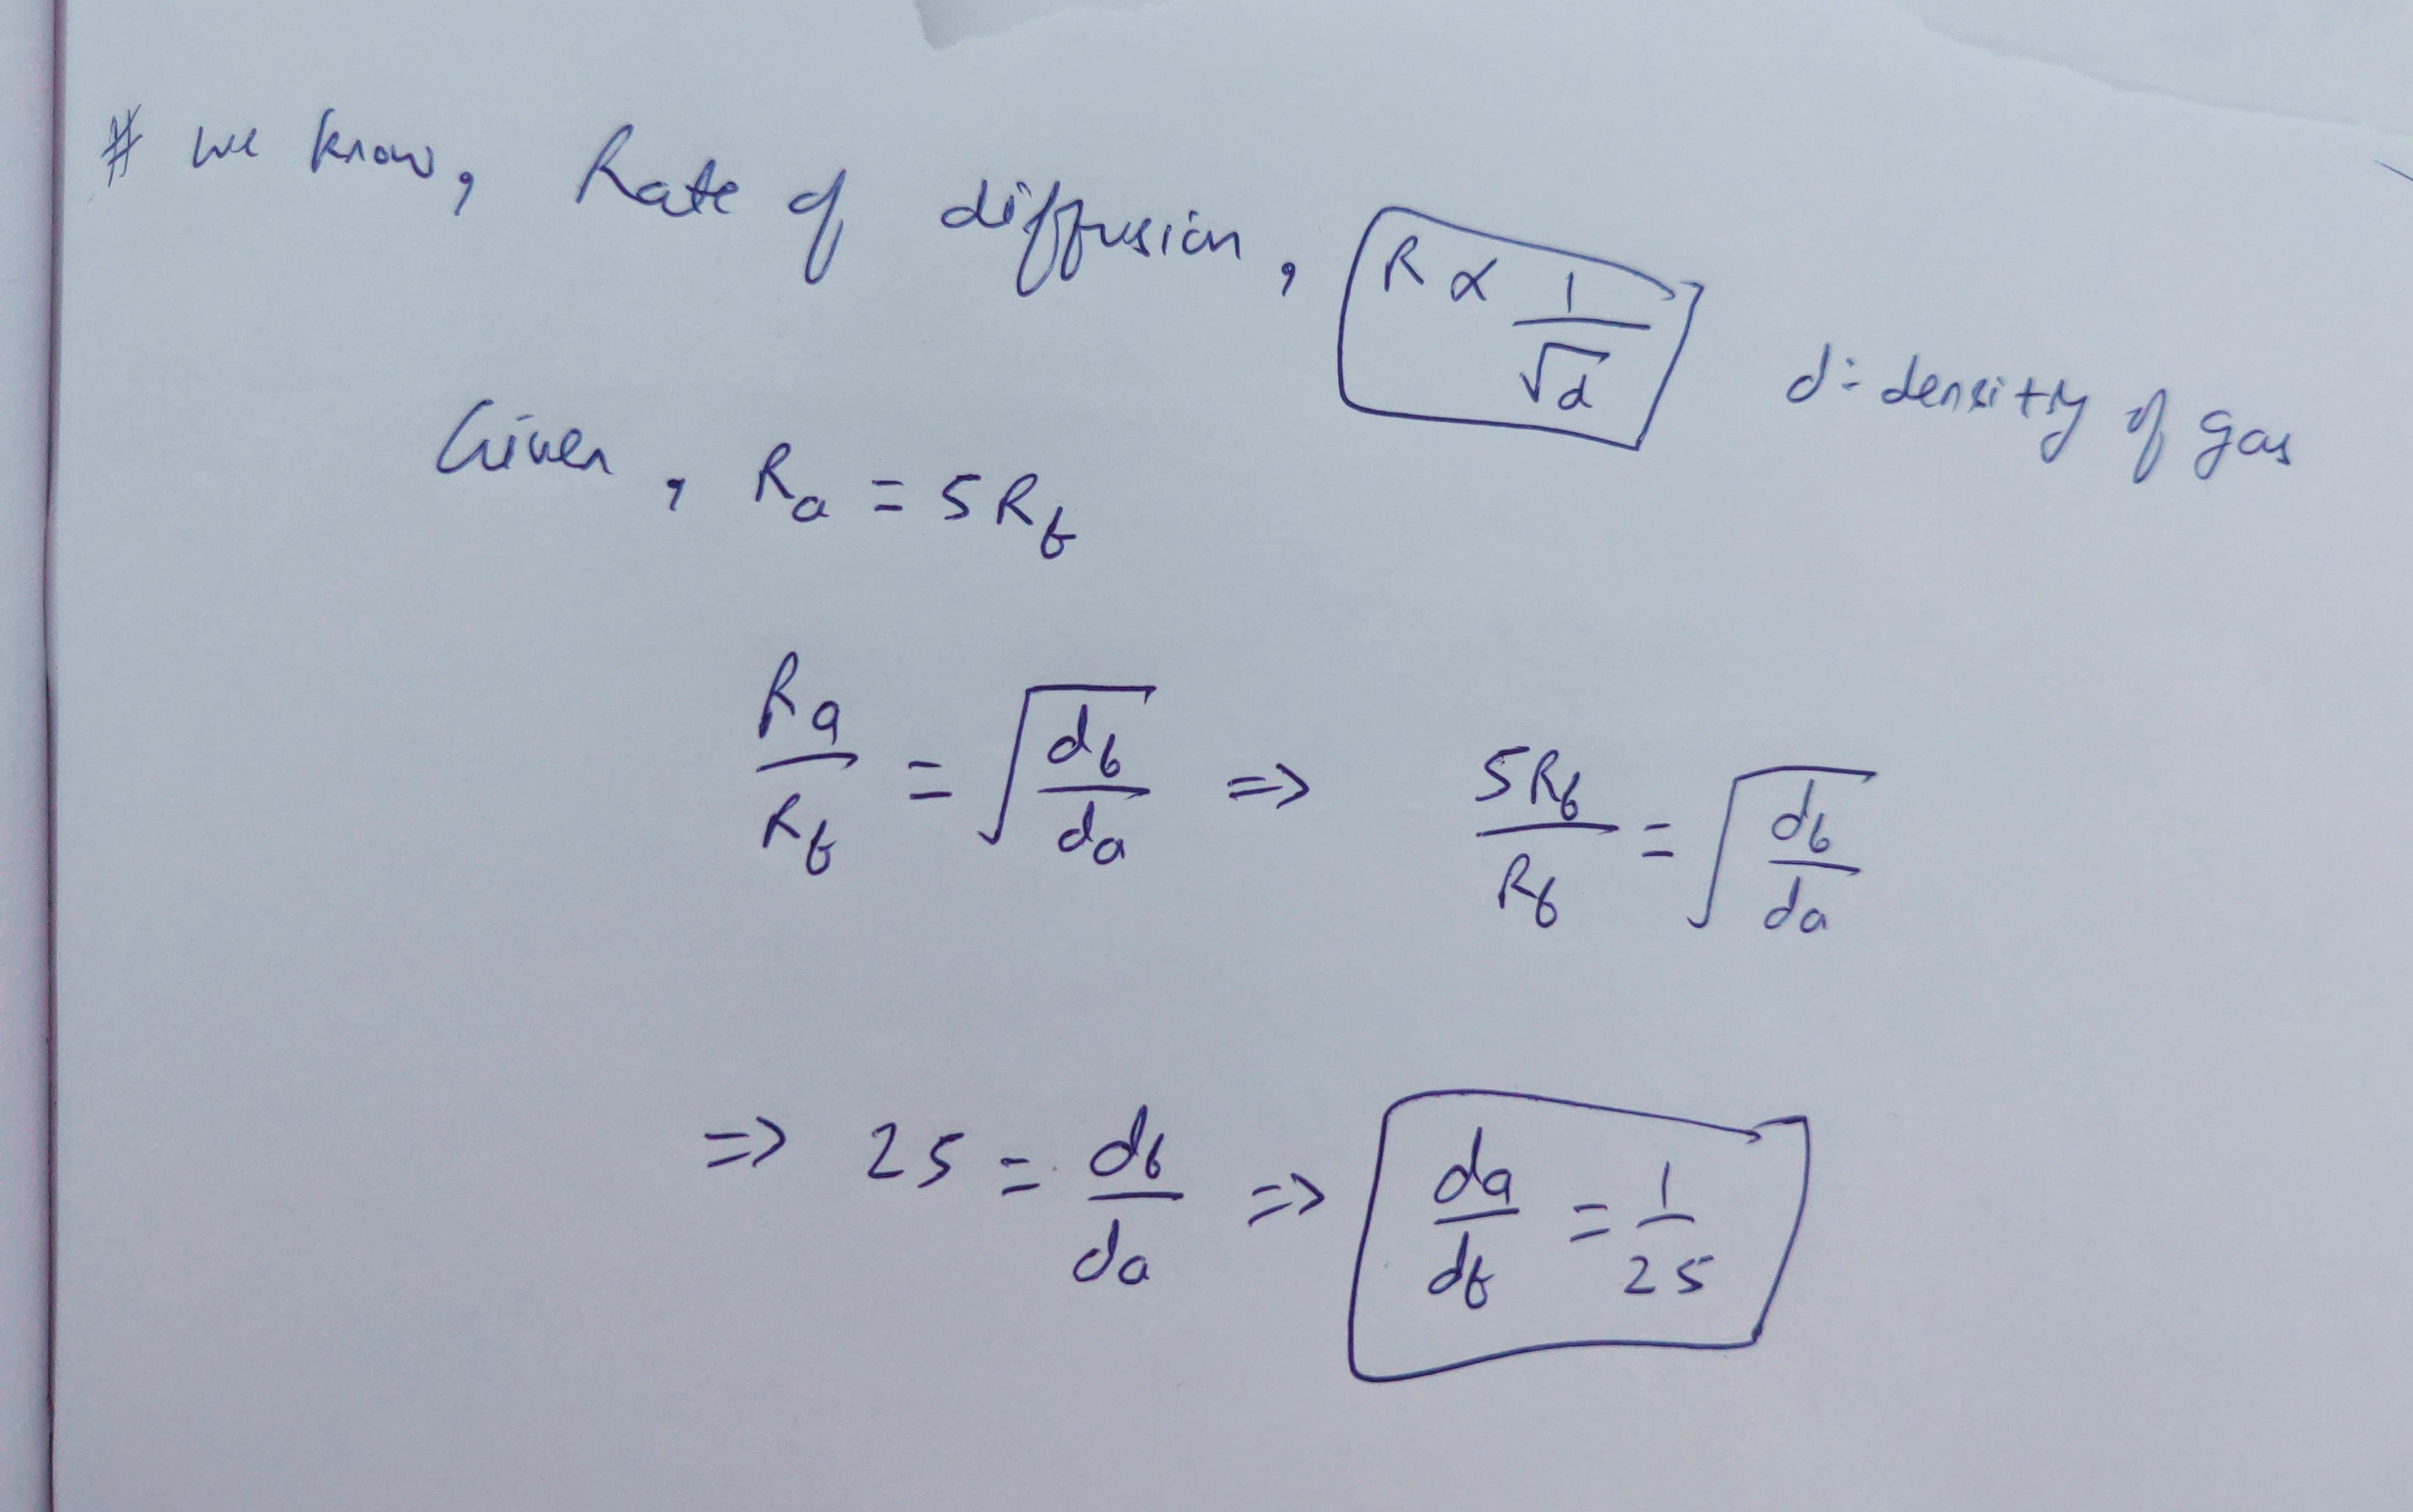 # we know, Rate of diffusion, R ∝ 1/√d d = density of gas
Given, Ra = 5Rb
Ra/Rb = √(db/da) => 5Rb/Rb = √(db/da)
=> 25 = db/da => da/db = 1/25